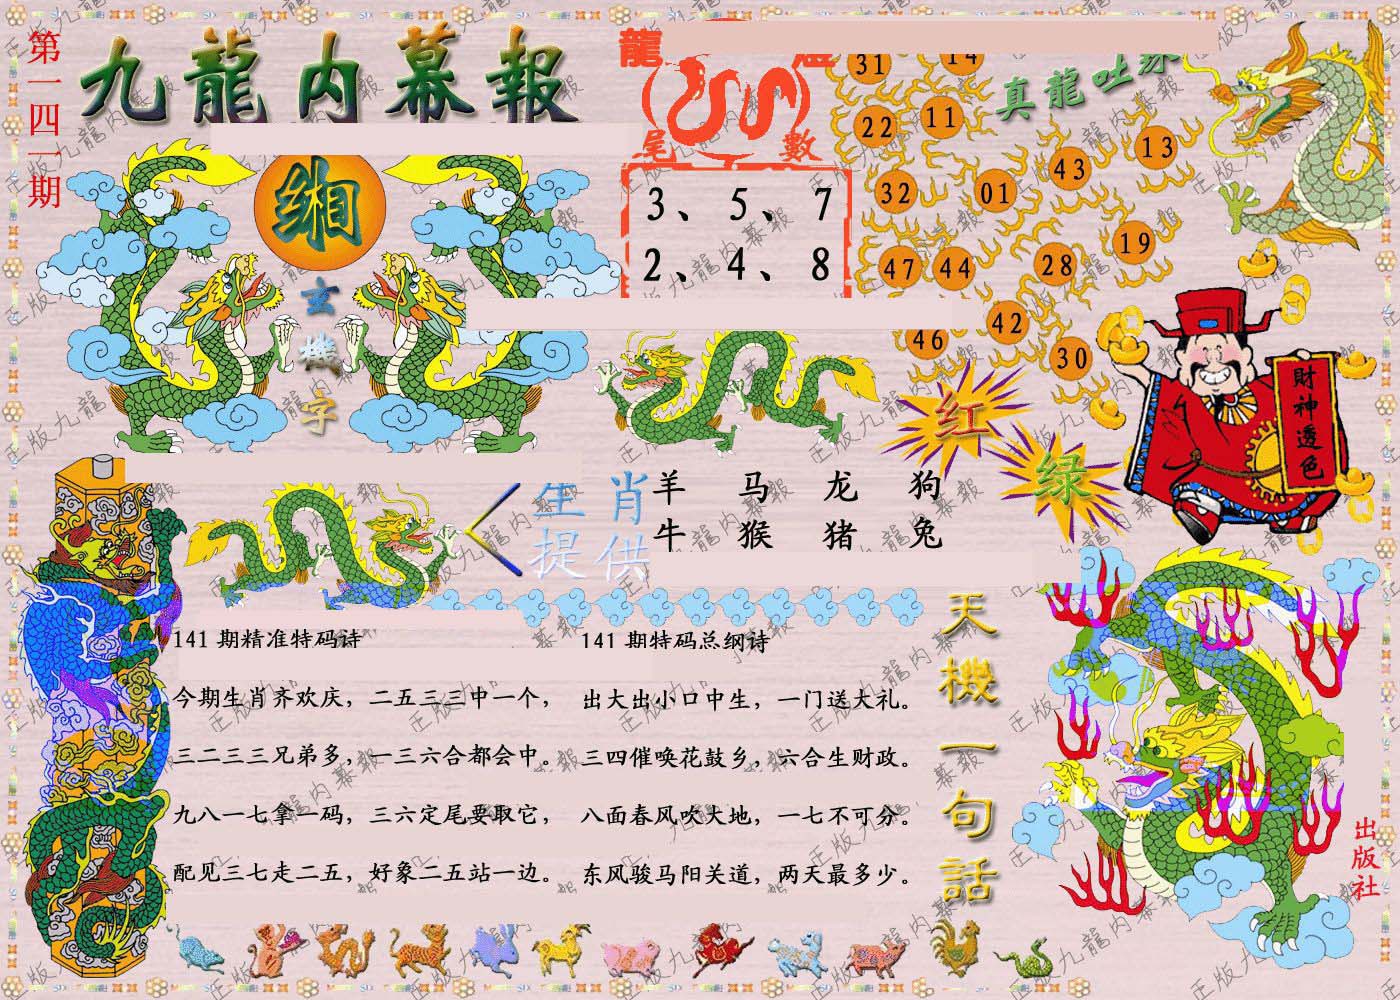 第一四一期
九龍内幕報
緗
玄機字
龍
尾數
3、5、7
2、4、8
真龍吐珠
31 14
22 11
43 13
32 01
19
47 44 28
46 42
30
红
绿
財神透色
生肖
提供
羊 马 龙 狗
牛 猴 猪 兔
141 期精准特码诗
今期生肖齐欢庆，二五三三中一个，
三二三三兄弟多，一三六合都会中。
九八一七拿一码，三六定尾要取它，
配见三七走二五，好象二五站一边。
141 期特码总纲诗
出大出小口中生，一门送大礼。
三四催唤花鼓乡，六合生财政。
八面春风吹大地，一七不可分。
东风骏马阳关道，两天最多少。
天機一句話
出版社
正版九龍内幕報